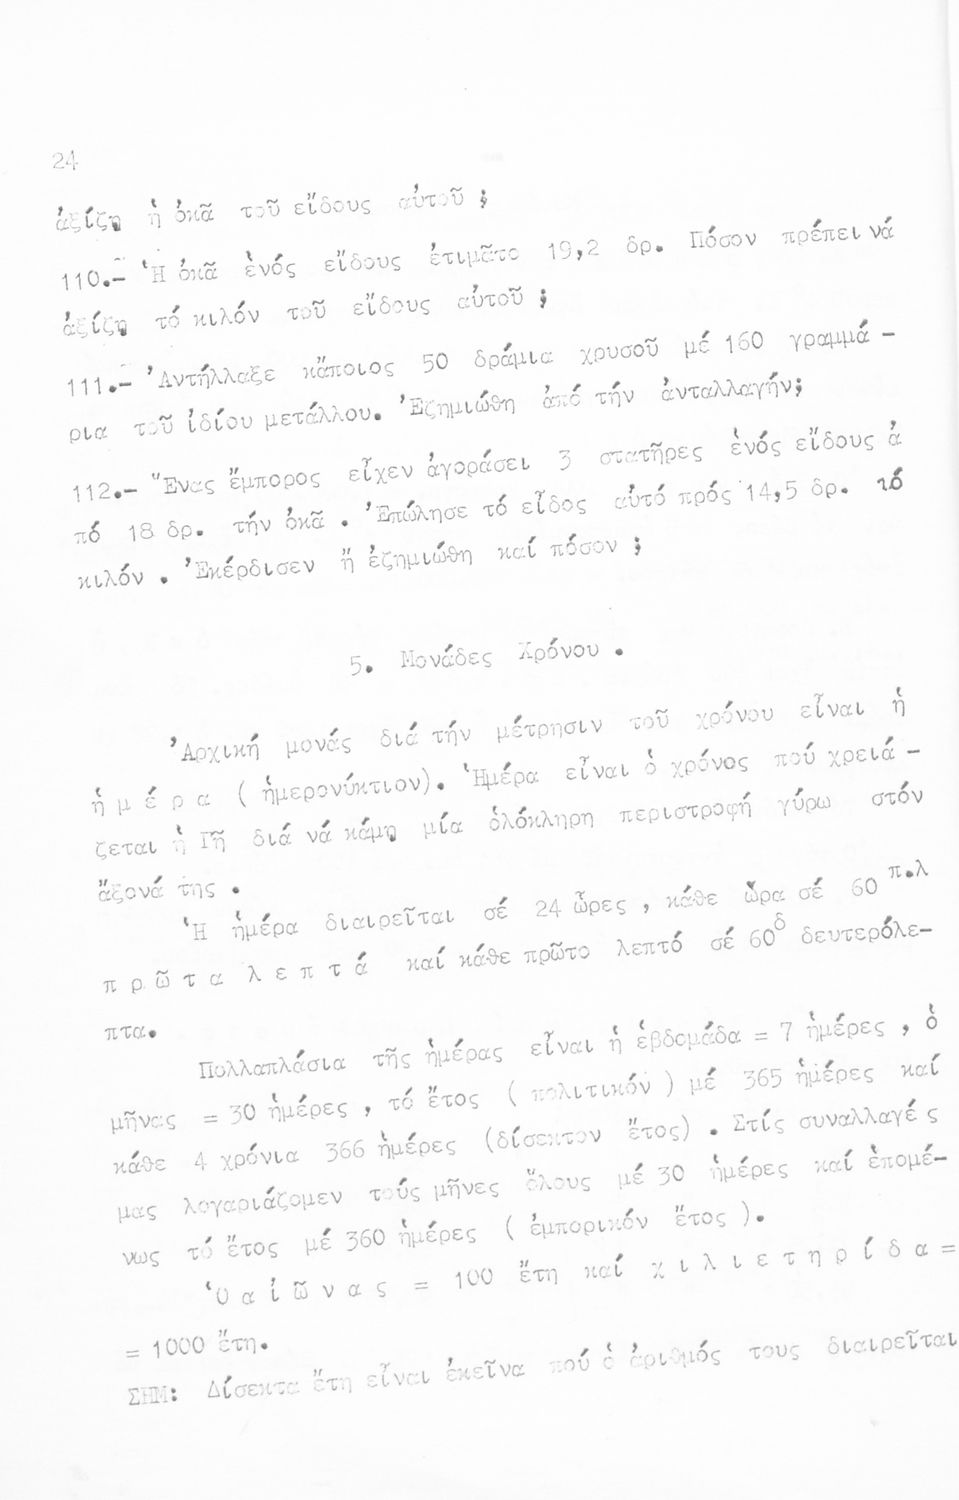 24
ἀξίζῃ ἡ ὀκᾶ τοῦ εἴδους αὐτοῦ ;
110.- Ἡ ὀκᾶ ἑνός εἴδους ἐτιμᾶτο 19,2 δρ. Πόσον πρέπει νά
ἀξίζῃ τό κιλόν τοῦ εἴδους αὐτοῦ ;
111.- Ἀντήλλαξε κἄποιος 50 δράμια χρυσοῦ μέ 160 γραμμά -
ρια τοῦ ἰδίου μετάλλου. Ἐζημιώθη ἀπό τήν ἀνταλλαγήν;
112.- Ἕνας ἔμπορος εἶχεν ἀγοράσει 3 στατῆρες ἑνός εἴδους ἀ
πό 18 δρ. τήν ὀκᾶ . Ἐπώλησε τό εἶδος αὐτό πρός 14,5 δρ. τό
κιλόν . Ἐκέρδισεν ἤ ἐζημιώθη καί πόσον ;
5. Μονάδες Χρόνου .
Ἀρχική μονάς διά τήν μέτρησιν τοῦ χρόνου εἶναι ἡ
ἡ μ έ ρ α ( ἡμερονύκτιον). Ἡμέρα εἶναι ὁ χρόνος πού χρειά -
ζεται ἡ Γῆ διά νά κάμῃ μία ὁλόκληρη περιστροφή γύρω στόν
ἄξονά της .
Ἡ ἡμέρα διαιρεῖται σέ 24 ὧρες , κάθε ὥρα σέ 60 π.λ
π ρ ῶ τ α λ ε π τ ά καί κάθε πρῶτο λεπτό σέ 60δ δευτερόλε-
πτα.
Πολλαπλάσια τῆς ἡμέρας εἶναι ἡ ἑβδομάδα = 7 ἡμέρες , ὁ
μῆνας = 30 ἡμέρες , τό ἔτος ( πολιτικόν ) μέ 365 ἡμέρες καί
κάθε 4 χρόνια 366 ἡμέρες (δίσεκτον ἔτος) . Στίς συναλλαγέ ς
μας λογαριάζομεν τούς μῆνες ὅλους μέ 30 ἡμέρες καί ἑπομέ-
νως τό ἔτος μέ 360 ἡμέρες ( ἐμπορικόν ἔτος ).
Ὁ α ἰ ῶ ν α ς = 100 ἔτη καί χ ι λ ι ε τ η ρ ί δ α =
= 1000 ἔτη.
ΣΗΜ: Δίσεκτα ἔτη εἶναι ἐκεῖνα πού ὁ ἀριθμός τους διαιρεῖται